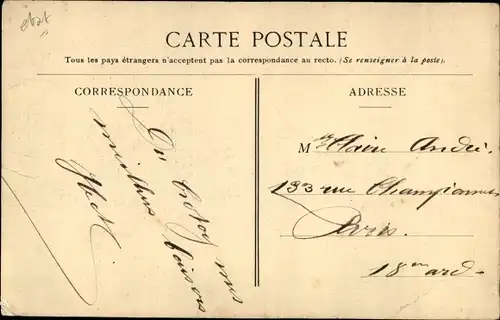 état
CARTE POSTALE
Tous les pays étrangers n'acceptent pas la correspondance au recto. (Se renseigner à la poste).
CORRESPONDANCE
ADRESSE
Du Crotoy mes
meilleurs baisers
Mr Clair André.
133 rue Championnet
Paris.
18em ard-